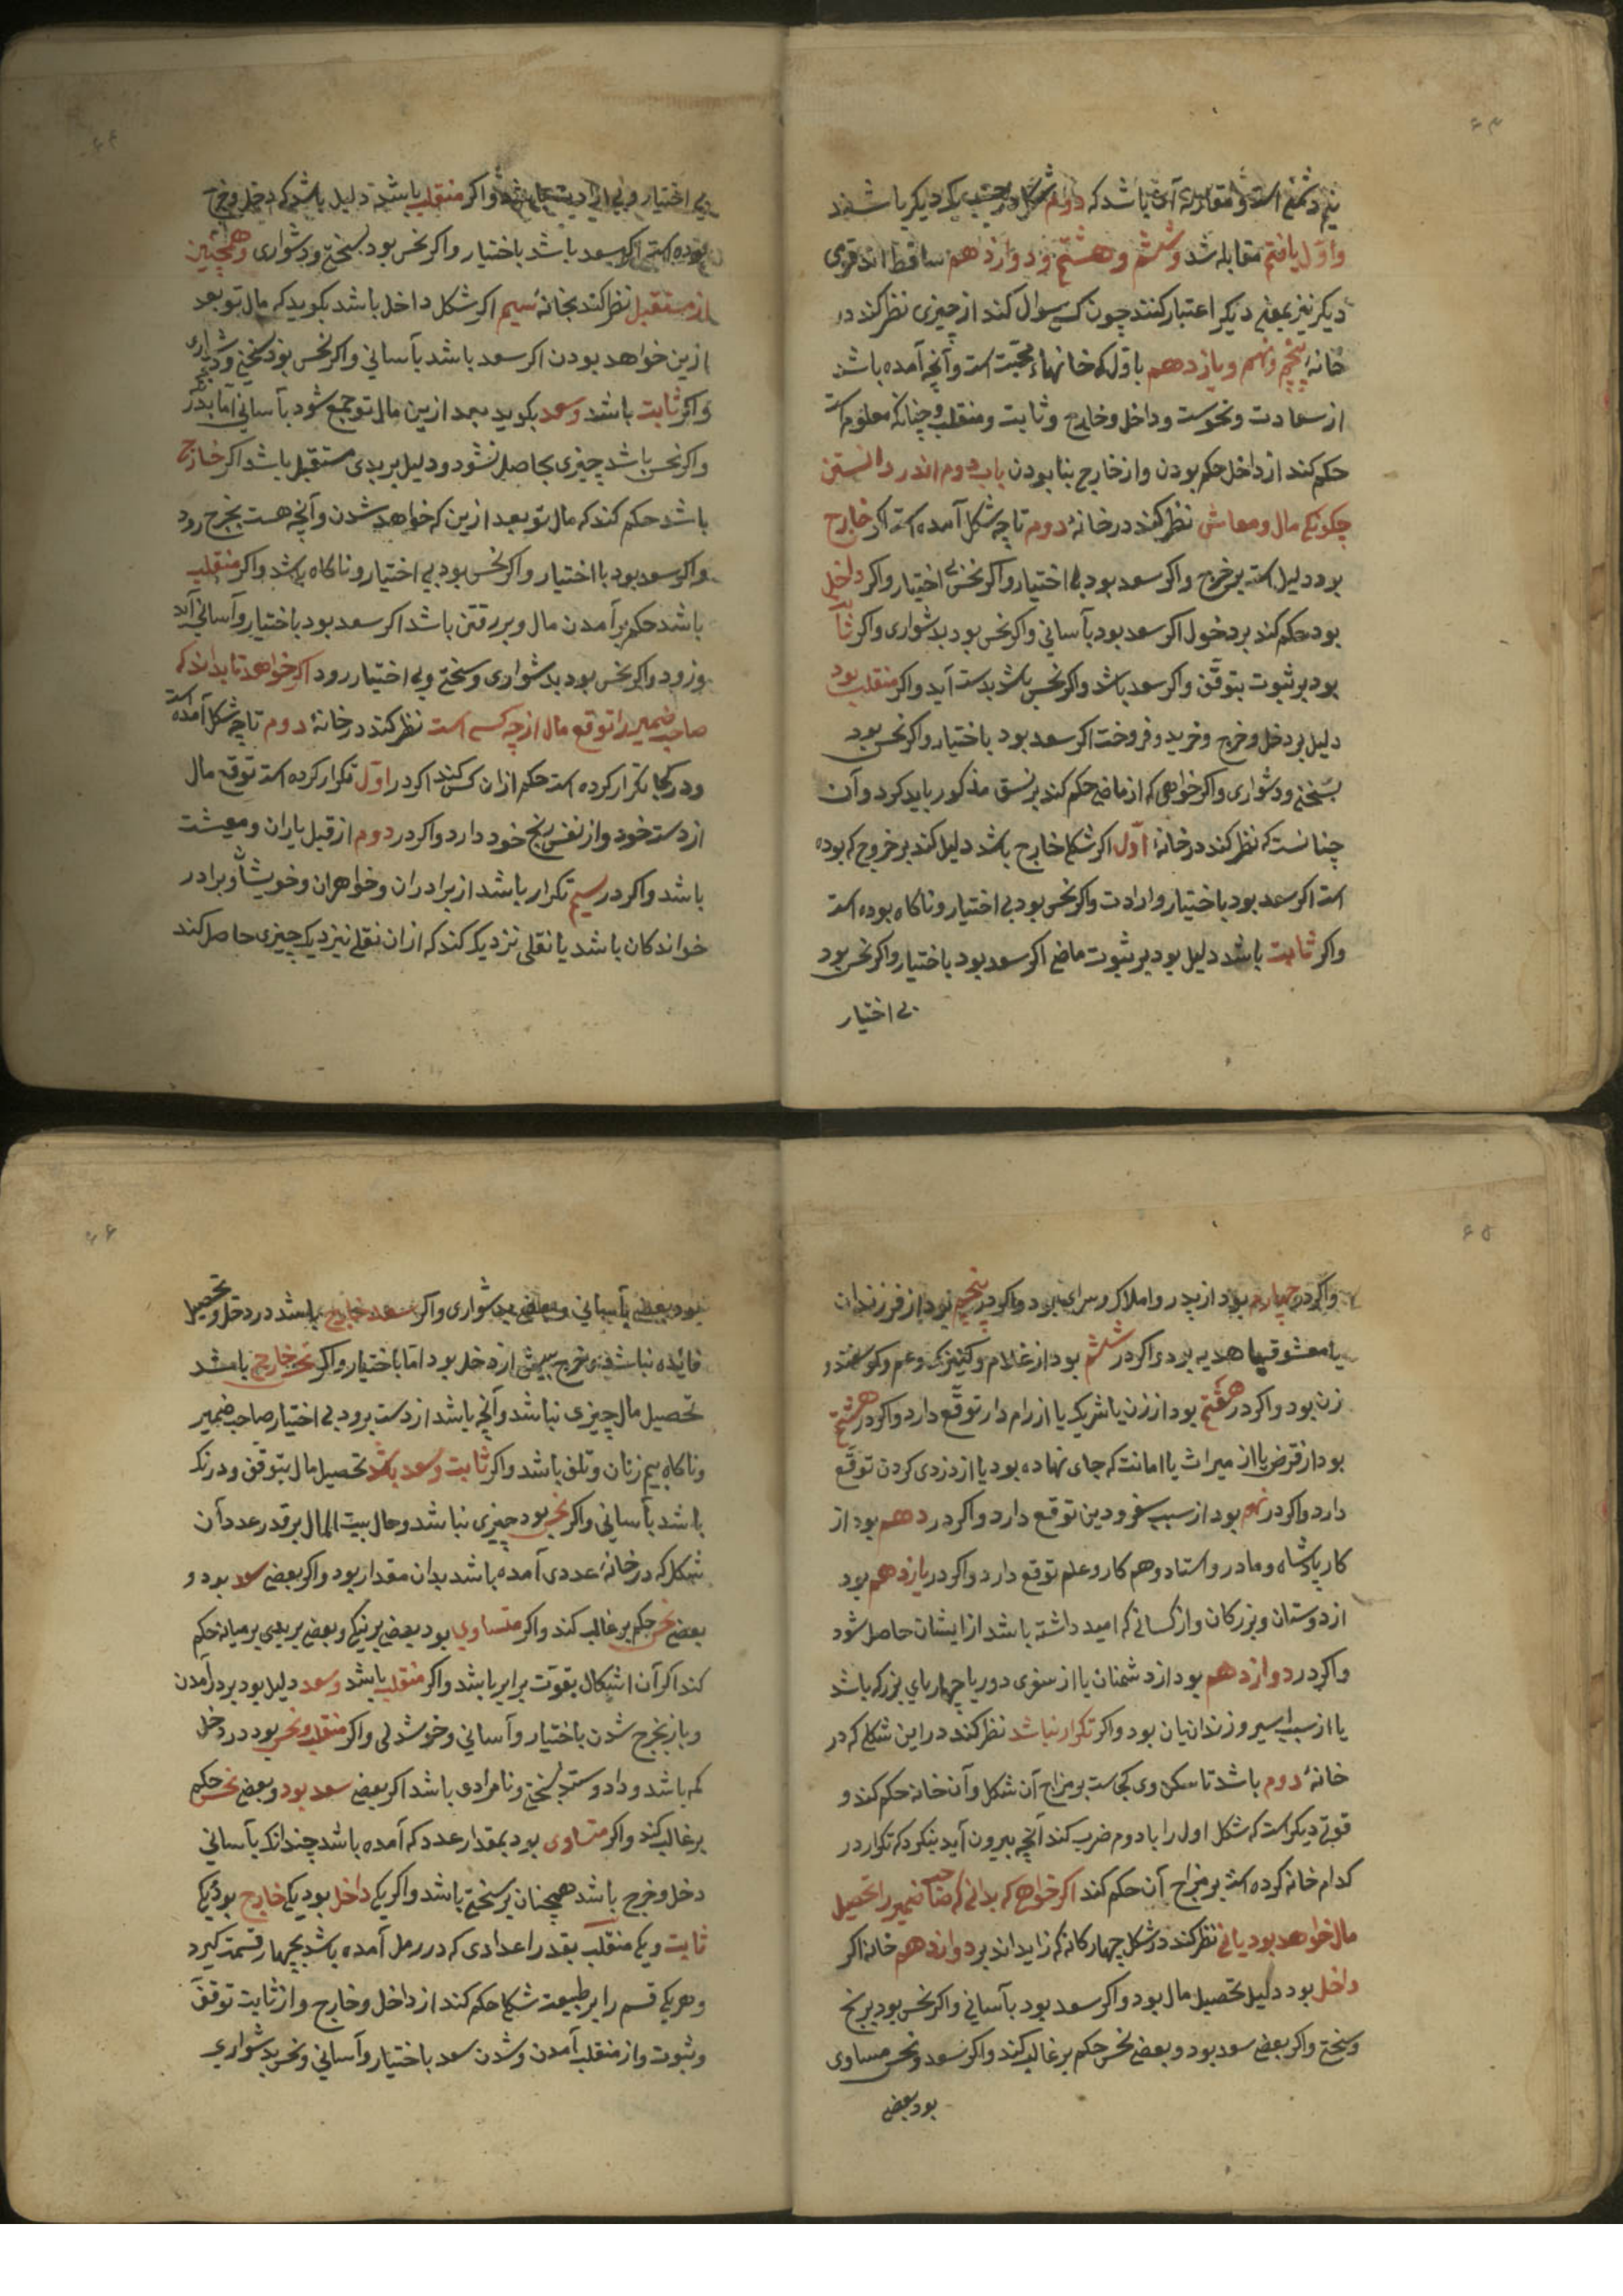 ۶۳
نیم دشمنی است و مقارنه آن باشد که دوم شکل در جنب یکدیگر باشند
و اول یا هفتم مقابله باشد و ششم و هشتم و دوازدهم ساقط اند قومی
دیگر نیز بمعنی دیگر اعتبار کنند چون کسی سوال کند از چیزی نظر کند در
خانهٔ پنجم و نهم و یازدهم با اول که خانهاء محبت است و آنچه آمده باشد
از سعادت و نحوست و داخل و خارج و ثابت و منقلب و چنانکه معلوم است
حکم کند از داخل حکم بودن و از خارج بنابودن باب دوم اندر دانستن
چکونکی مال و معاش نظر کند در خانهٔ دوم تا چه شکل آمده است اکر خارج
بود دلیل است بر خرج و اکر سعد بود با اختیار و اکر نحس بی اختیار و اکر داخل
بود حکم کند بر دخول اکر سعد بود بآسانی و اکر نحس بود بدشواری و اکر ثابت
بود بر ثبوت بتوقف و اکر سعد باشد و اکر نحس باشد بدست آید و اکر منقلب بود
دلیل بر دخل و خرج و خرید و فروخت اکر سعد بود باختیار و اکر نحس بود
بسختی و دشواری و اکر خواهی که از ماضی حکم کند بر نسق مذکور باید کرد و آن
چنانست که نظر کند در خانهٔ اول اکر شکل خارج باشد دلیل کند بر خروج که بوده
است اکر سعد بود باختیار و ارادت و اکر نحس بود بی اختیار و ناکاه بوده است
و اکر ثابت باشد دلیل بود بر ثبوت ماضی اکر سعد بود باختیار و اکر نحس بود
بی اختیار
۶۴
بی اختیار و بی ارادت باشد و اکر منقلب باشد دلیل باشد که دخل و خرج
بوده است اکر سعد باشد باختیار و اکر نحس بود بسختی و دشواری و همچنین
از مستقبل نظر کند بخانهٔ سیم اکر شکل داخل باشد بکوید که مال تو بعد
ازین خواهد بودن اکر سعد باشد بآسانی و اکر نحس بود بسختی و دشواری
و اکر ثابت باشد و سعد بکوید بعد ازین مال تو جمع شود بآسانی اما بدرنک
و اکر نحس باشد چیزی بحاصل نشود و دلیل بر بدی مستقبل باشد اکر خارج
باشد حکم کند که مال تو بعد ازین که خواهد شدن و آنچه هست بخرج رود
و اکر سعد بود با اختیار و اکر نحس بود بی اختیار و ناکاه باشد و اکر منقلب
باشد حکم بر آمدن مال و بر رفتن باشد اکر سعد بود باختیار و آسانی آید
و رود و اکر نحس بود بدشواری و سختی و بی اختیار رود اکر خواهد تا بداند که
صاحب ضمیر را توقع مال از چه کسی است نظر کند در خانهٔ دوم تا چه شکل آمده است
و در کجا تکرار کرده است حکم از ان کس کند اکر در اول تکرار کرده است توقع مال
از دست خود و از نفس رنج خود دارد و اکر در دوم از قبل یاران و معیشت
باشد و اکر در سیم تکرار باشد از برادران و خواهران و خویشان و برادر
خواندکان باشد یا نقلی نزدیک کند که از ان نقل نیز دیک چیزی حاصل کند
۶۵
و اکر در چهارم بود از پدر و املاک و سرای بود و اکر در پنجم بود از فرزندان
یا معشوق یا هدیه بود و اکر در ششم بود از غلام و کنیزک و عم و کوسفند و
زن بود و اکر در هفتم بود از زن یا شریک یا از رام دار توقع دارد و اکر در هشتم
بود از قرض یا از میراث یا امانت که جای نهاده بود یا از دزدی کردن توقع
دارد و اکر در نهم بود از سبب سفر و دین توقع دارد و اکر در دهم بود از
کار پادشاه و مادر و استاد و هم کار و علم توقع دارد و اکر در یازدهم بود
از دوستان و بزرکان و از کسانی که امید داشته باشد از ایشان حاصل شود
و اکر در دوازدهم بود از دشمنان یا از سفری دور یا چهارپای بزرک باشد
یا از سبب اسیر و زندانیان بود و اکر تکرار نباشد نظر کند در این شکل که در
خانهٔ دوم باشد تا سکن وی کجاست بر مزاج آن شکل و آن خانه حکم کند و
قوتی دیکر است که شکل اول را با دوم ضرب کند آنچه بیرون آید بنکرد که تکرار در
کدام خانه کرده است بر مزاج آن حکم کند اکر خواهی که بدانی که صاحب ضمیر را تحصیل
مال خواهد بود یانی نظر کند در شکل چهارکانه که زاید اند بر دوازدهم خانه اکر
داخل بود دلیل تحصیل مال بود و اکر سعد بود بآسانی و اکر نحس بود برنج
و سختی و اکر بعضی سعد بود و بعضی نحس حکم بر غالب کند و اکر سعد و نحس مساوی
بود بعضی
۶۶
بود بعضی بآسانی و بعضی بدشواری و اکر سعد خارج باشد در دخل و تحصیل
فائده نباشد و خرج بیش از دخل بود اما باختیار و اکر نحس خارج باشد
تحصیل مال چیزی نباشد و آنچه باشد از دست برود بی اختیار صاحب ضمیر
و ناکاه بیم زیان و تلف باشد و اکر ثابت و سعد باشد تحصیل مال بتوقف و درنک
باشد بآسانی و اکر نحس بود چیزی نباشد و حال بیت المال بر قدر عدد آن
شکل که در خانهٔ عددی آمده باشد بدان مقدار بود و اکر بعضی سعد بود و
بعضی نحس حکم بر غالب کند و اکر متساوی بود بعضی بر نیکی و بعضی بر بدی بر میانه حکم
کند اکر آن اشکال بقوت برابر باشد و اکر منقلب باشد و سعد دلیل بود بر در آمدن
و باز بخرج شدن باختیار و آسانی و خوشدلی و اکر منقلب و نحس بود در دخل
کم باشد و داد و ستد بسختی و نامرادی باشد اکر بعضی سعد بود و بعضی نحس حکم
بر غالب کند و اکر متساوی بود بمقدار عدد که آمده باشد چندانکه بآسانی
دخل و خرج باشد همچنان بر سختی باشد و اکر یکی داخل بود یکی خارج بود یکی
ثابت و یکی منقلب بقدر اعدادی که در رمل آمده باشد بچهار قسمت کیرد
و هر یکی قسم را بر طبیعت شکل حکم کند از داخل و خارج و از ثابت توقف
و ثبوت و از منقلب آمدن و شدن سعد باختیار و آسانی و نحس بدشواری